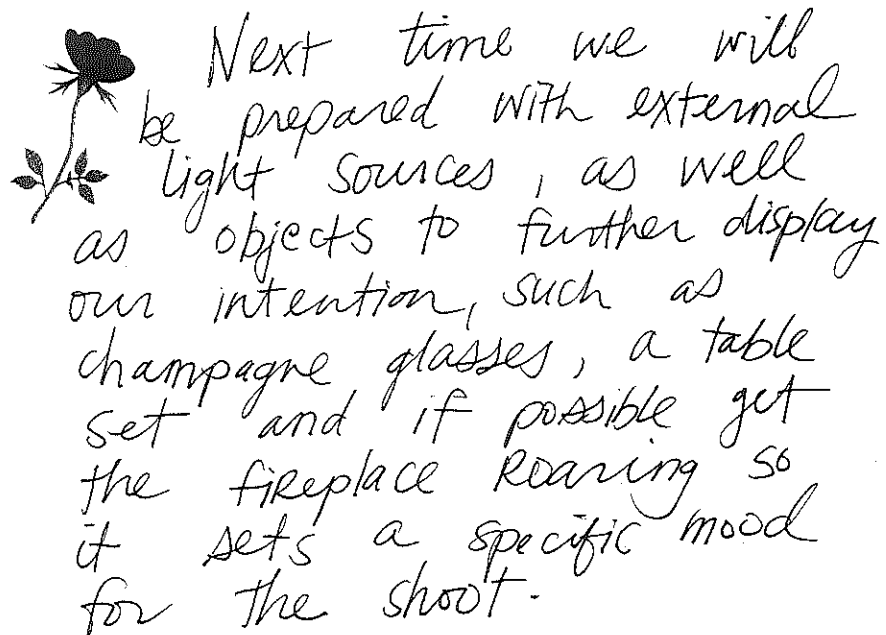 Next time we will
be prepared with external
light sources, as well
as objects to further display
our intention, such as
champagne glasses, a table
set and if possible get
the fireplace Roaring so
it sets a specific mood
for the shoot.